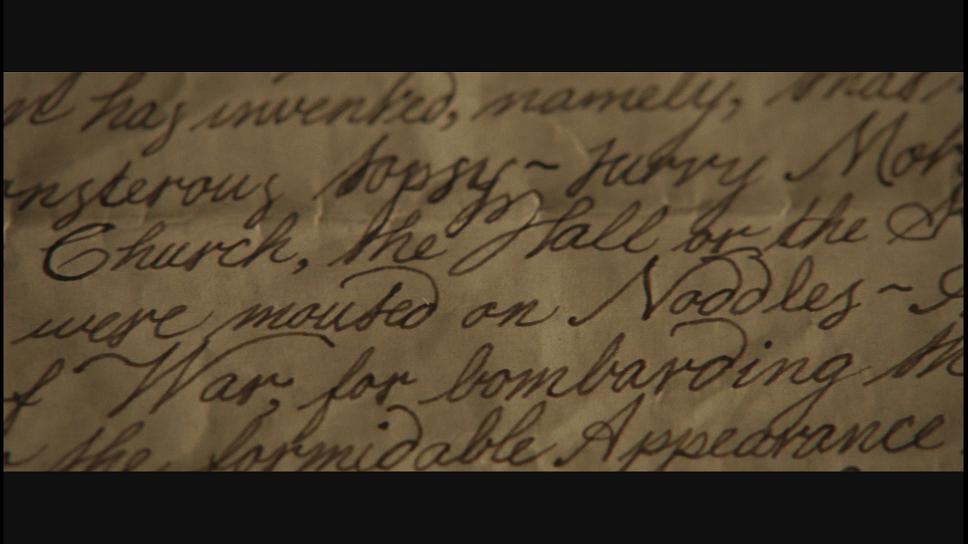 has invented, namely,
topsy~turvy
Church, the Hall or the
were mouted on Noddles~
War, for bombarding
the formidable Appearance